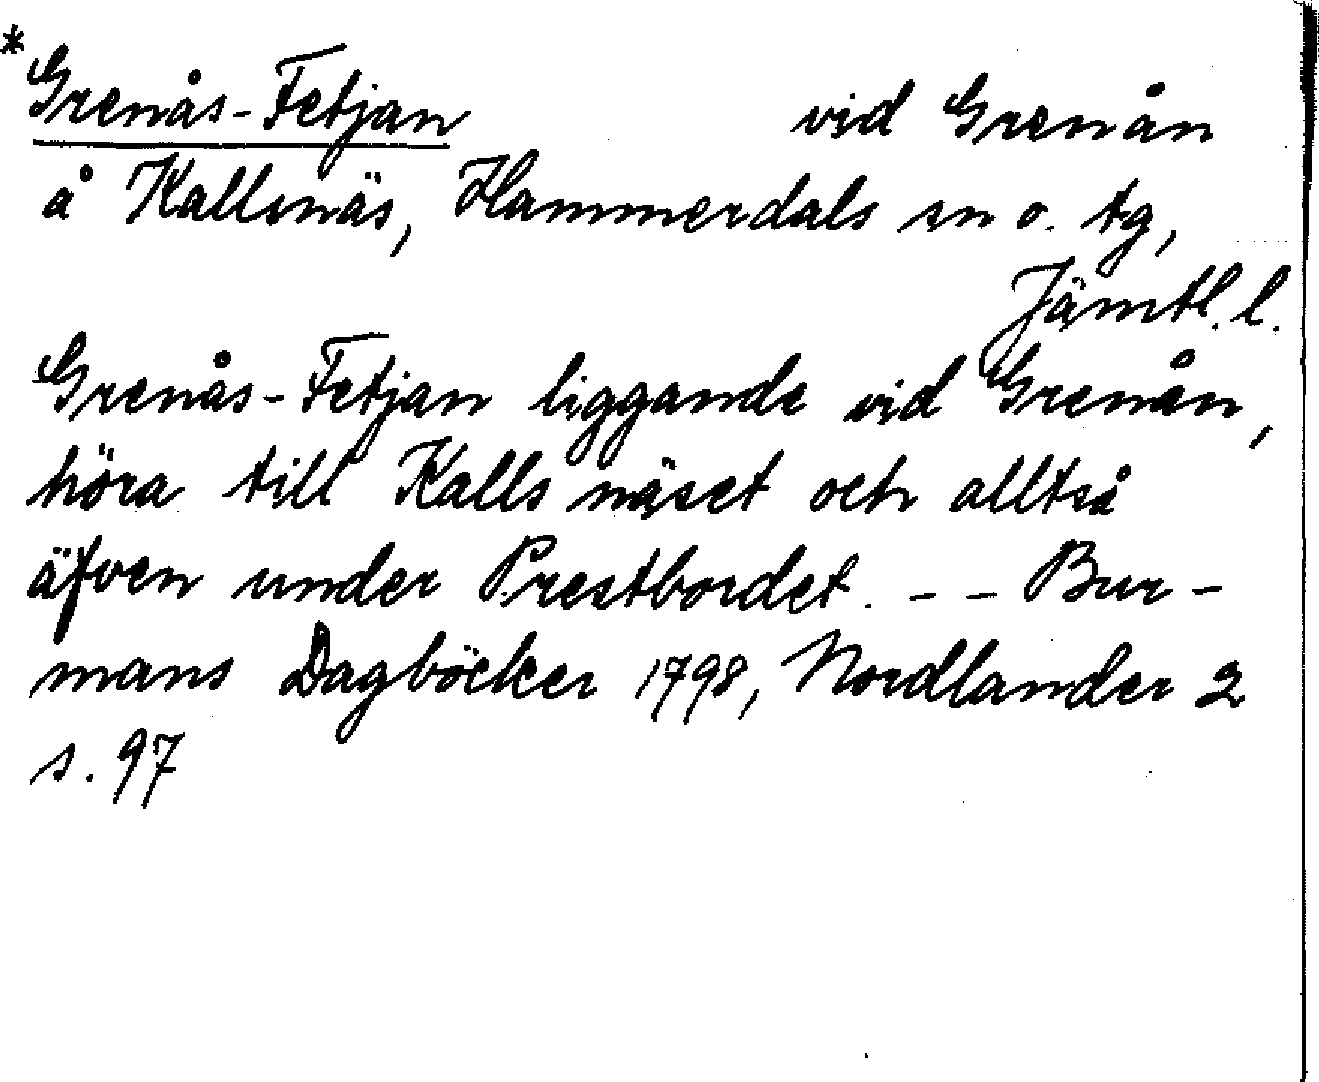 * Grenås-Fetjan vid Grenån
å Kallsnäs, Hammerdals sn o. tg,
Jämtl. l.
Grenås-Fetjan liggande vid Grenån,
höra till Kalls näset och alltså
äfven under Prestbordet. - - Bur-
mans Dagböcker 1798, Nordlander 2
s. 97